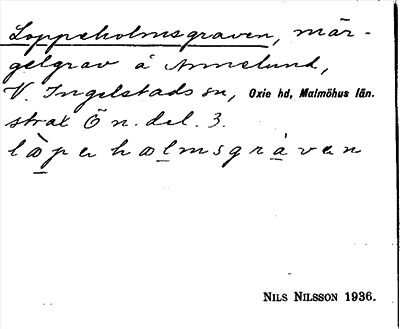 Loppeholmsgraven, mär-
gelgrav å Annelund,
V. Ingelstads sn, Oxie hd, Malmöhus län.
strax Ö n. del. 3.
lòpehòlmsgràven
NILS NILSSON 1936.